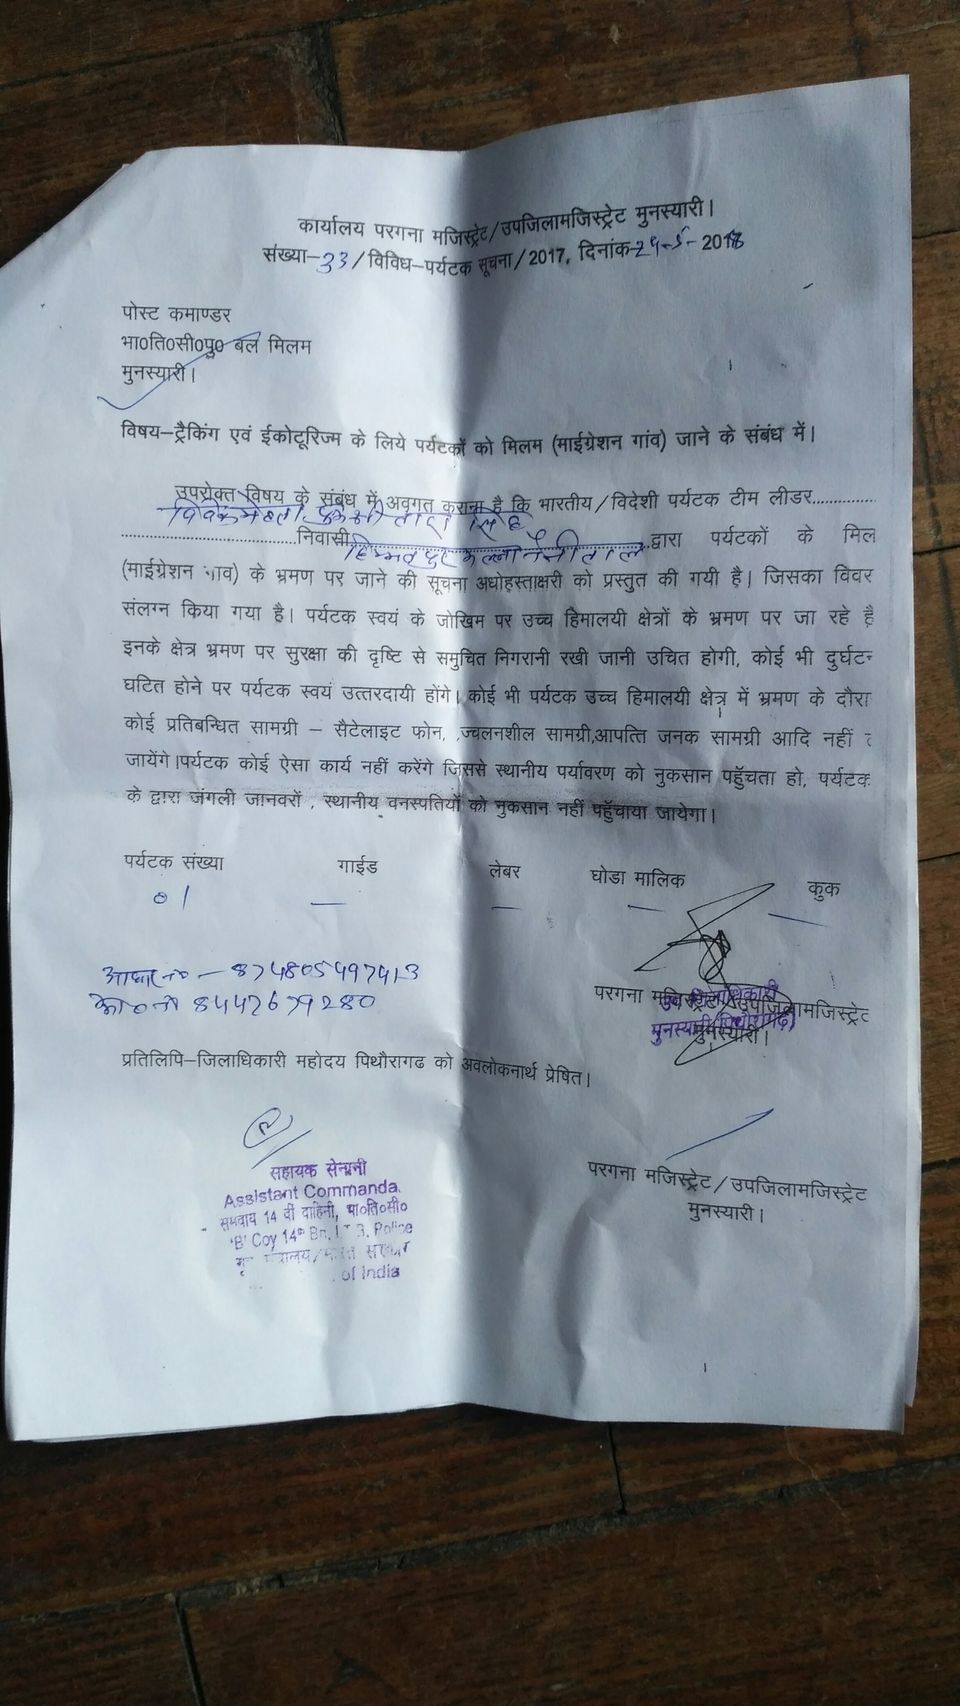 कार्यालय परगना मजिस्ट्रेट/उपजिलामजिस्ट्रेट मुनस्यारी।
संख्या-33/विविध-पर्यटक सूचना/2017, दिनांक 2018
पोस्ट कमाण्डर
भा0ति0सी0पु0 बल मिलम
मुनस्यारी।
विषय-ट्रैकिंग एवं ईकोटूरिज्म के लिये पर्यटकों को मिलम (माईग्रेशन गांव) जाने के संबंध में।
उपरोक्त विषय के संबंध में अवगत कराना है कि भारतीय/विदेशी पर्यटक टीम लीडर...............
सिंह
.....................................निवासी द्वारा पर्यटकों के मिल
(माईग्रेशन गाव) के भ्रमण पर जाने की सूचना अधोहस्ताक्षरी को प्रस्तुत की गयी है। जिसका विवर
संलग्न किया गया है। पर्यटक स्वयं के जोखिम पर उच्च हिमालयी क्षेत्रों के भ्रमण पर जा रहे हैं
इनके क्षेत्र भ्रमण पर सुरक्षा की दृष्टि से समुचित निगरानी रखी जानी उचित होगी, कोई भी दुर्घट
घटित होने पर पर्यटक स्वयं उत्तरदायी होंगे। कोई भी पर्यटक उच्च हिमालयी क्षेत्र में भ्रमण के दौरा
कोई प्रतिबन्धित सामग्री – सैटेलाइट फोन, ज्वलनशील सामग्री,आपत्ति जनक सामग्री आदि नहीं
जायेंगे।पर्यटक कोई ऐसा कार्य नहीं करेंगे जिससे स्थानीय पर्यावरण को नुकसान पहुँचता हो, पर्यटक
के द्वारा जंगली जानवरों , स्थानीय वनस्पतियों को नुकसान नहीं पहुँचाया जायेगा।
पर्यटक संख्या गाईड लेबर घोडा मालिक कुक
01 — — — —
आधार न० – 874805497413
8447679280
उप जिलाधिकारी
परगना मजिस्ट्रेट/उपजिलामजिस्ट्रेट
मुनस्यारी (पिथौरागढ़)
मुनस्यारी।
प्रतिलिपि-जिलाधिकारी महोदय पिथौरागढ को अवलोकनार्थ प्रेषित।
सहायक सेनानी
Assistant Commanda
समवाय 14 वी वाहिनी, भा०ति०सी०
'B' Coy 14th Bn, I.T.B. Police
of India
परगना मजिस्ट्रेट/उपजिलामजिस्ट्रेट
मुनस्यारी।